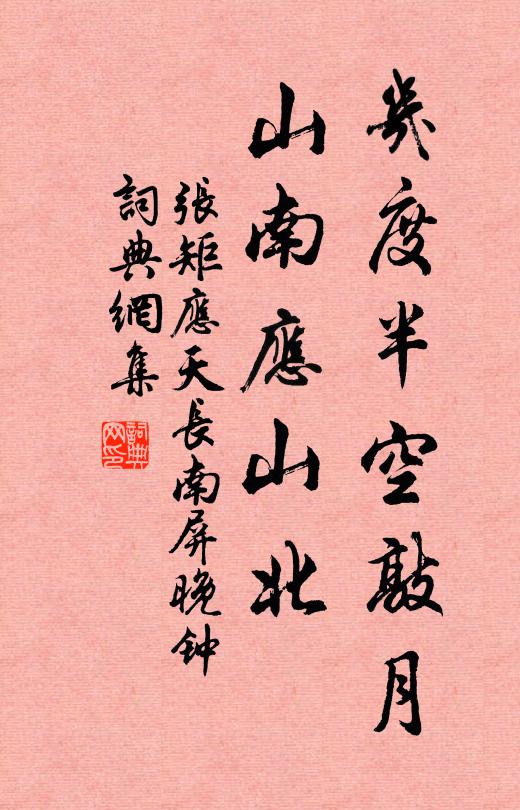 幾度半空敲月
山南應山北
張矩應天長南屏晚钟
詞典網集
詞典网印